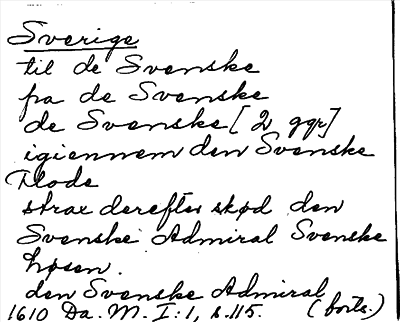 Sverige
til de Svenske
fra de Svenske
de Svenske [2 ggr]
igiennem den Svenske
Flode
strax derefter skød den
Svenske Admiral Svenske
høsen.
den Svenske Admiral
1610 Da. M. I:1, s. 115. (forts.)